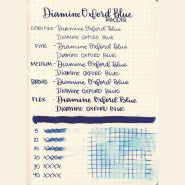 Diamine Oxford Blue
RHODIA
EXTRA FINE - Diamine Oxford Blue
DIAMINE OXFORD BLUE
FINE - Diamine Oxford Blue
DIAMINE OXFORD BLUE
MEDIUM - Diamine Oxford Blue
DIAMINE OXFORD BLUE
BROAD - Diamine Oxford Blue
DIAMINE OXFORD BLUE
FLEX - Diamine Oxford Blue
DIAMINE OXFORD BLUE
5
10 XXXX
15 XXXX
20 XXXX
30 XXXX
40 XXXX